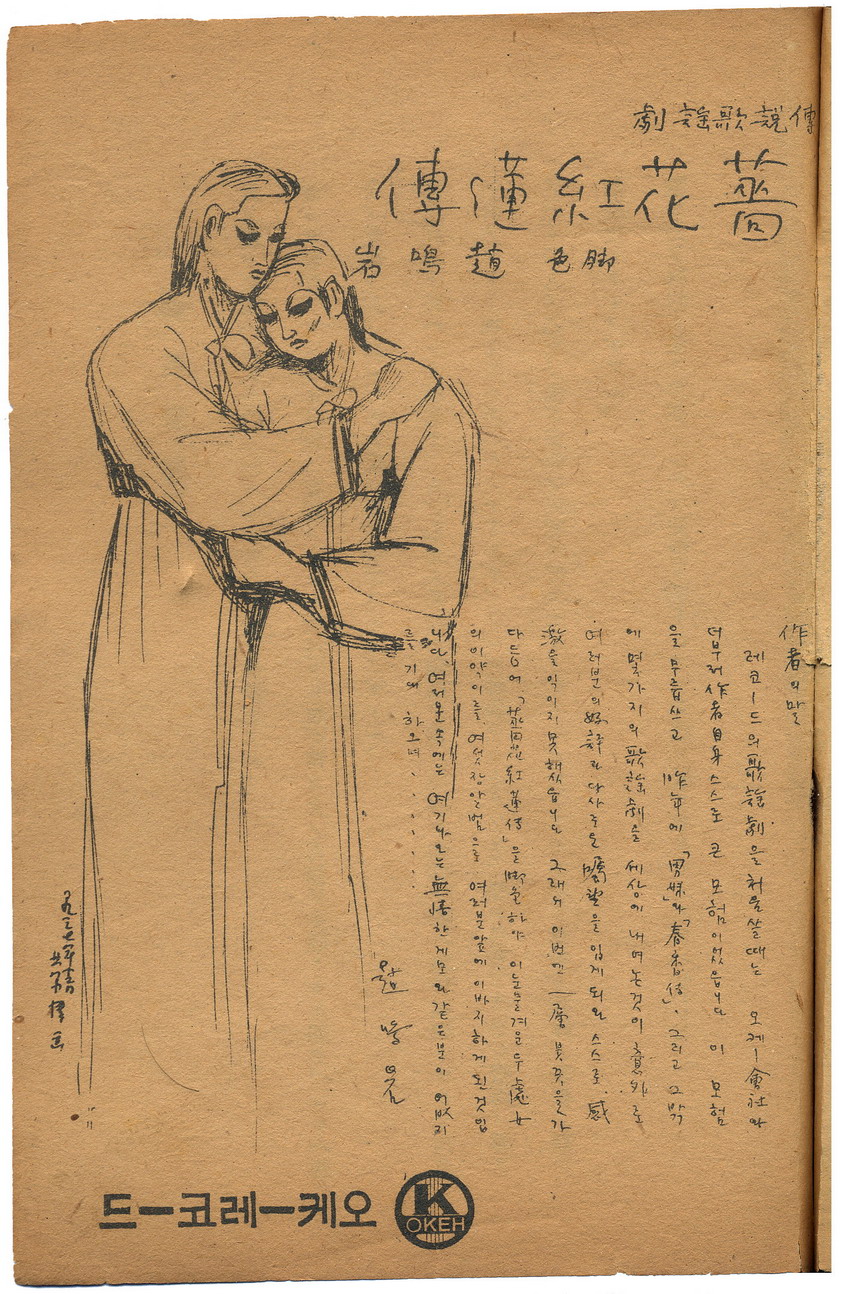 傳說歌謠劇
薔花紅蓮傳
脚色 趙鳴岩
作者의 말
레코ー드의 歌謠劇을 처음 쓸 때는 오케ー會社와
더부러 作者自身 스스로 큰 모험이었읍니다 이 모험
을 무릅쓰고 昨年에「男妹」와「春香傳」, 그리고 그 밖
에 몇가지의 歌謠劇을 세상에 내여논것이 意外로
여러분의 好評과 다사로운 囑望을 입게되와 스스로 感
激을 익이지 못했읍니다 그래서 이번엔 一層 붓끝을 가
다듬어「薔花紅蓮傳」을 脚色하야 이 눈물겨운 두 處女
의 이약이를 여섯장 알범으로 여러분 앞에 이바지하게 된것입
니다. 여러분 속에는 여기 나오는 無情한 게모와 같은 분이 없기
를 기대하오며 ......
趙鳴岩
오케ー레코ー드
K
OKEH